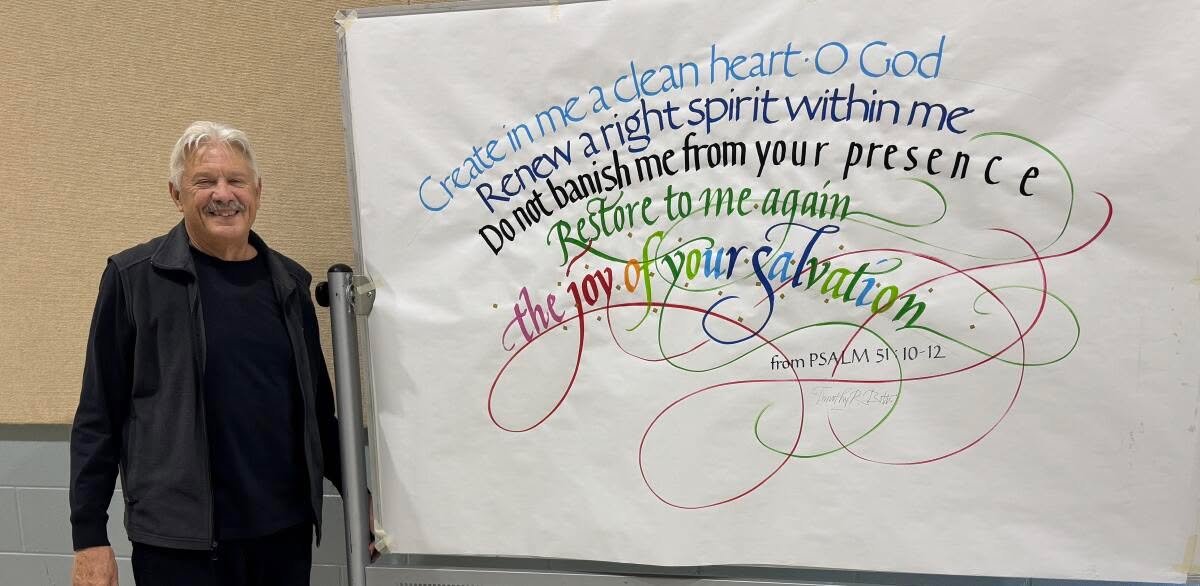 Create in me a clean heart · O God
Renew a right spirit within me
Do not banish me from your presence
Restore to me again
the · joy · of · your · salvation
from PSALM 51:10-12
Timothy R. Botts